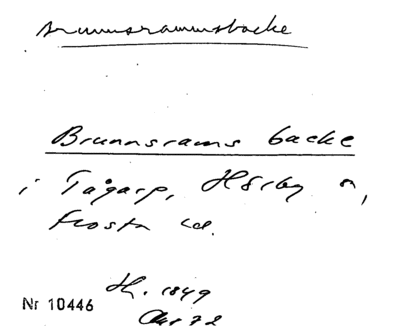 Brunnsramsbacke
Brunnsrams backe
i Tågarp, Hörby s,
Frosta hd.
H. 1849
Nr 10446